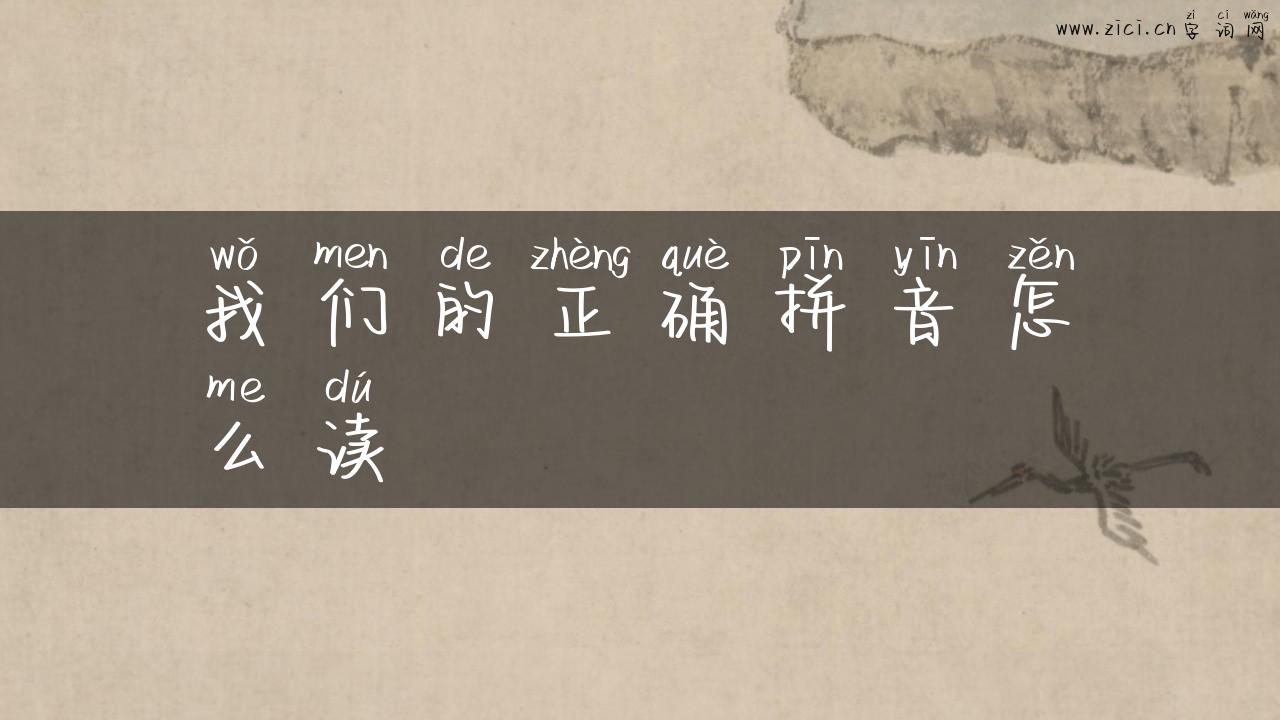 zì cí wǎng
www.zici.cn 字词网
wǒ men de zhèng què pīn yīn zěn
我们的正确拼音怎
me dú
么读